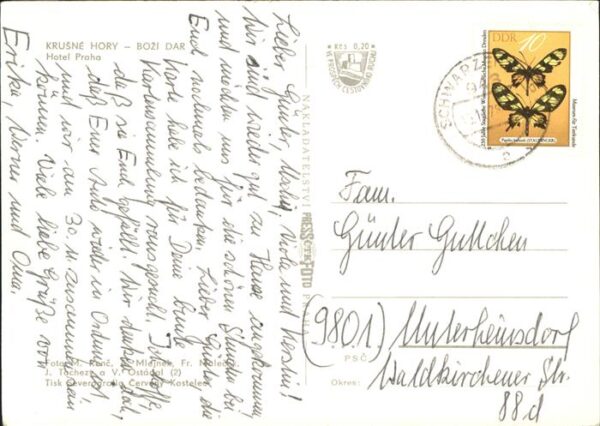 KRUŠNÉ HORY – BOŽÍ DAR
Hotel Praha
Kčs 0,20
NAKLADATELSTVÍ PRESSFOTO PRAHA
DDR 10
Museum für Tierkunde
SCHWARZE
Lieber Günter, Maria, Viola und
Wir sind wieder gut zu Hause angekommen
und möchten uns für die schönen Stunden bei
Euch nochmals bedanken. Lieber Günter, die
Karte habe ich für Deine bunte
Kartensammlung rausgesucht. Ich hoffe,
daß sie Euch gefällt. Wir
daß Euer Auto wieder in Ordnung ist,
und wir am 30.11. zusammen sein
können. Viele liebe Grüße von
Erika, Werner und Oma.
Fam.
Günter Guttchen
(9801) Unterheinsdorf
PSČ
Waldkirchener Str.
Okres:
88d
Foto: M. Mlejnek, Fr.
J. Tachezy a V. Ostádal (2)
Tisk Severografia Červený Kostelec